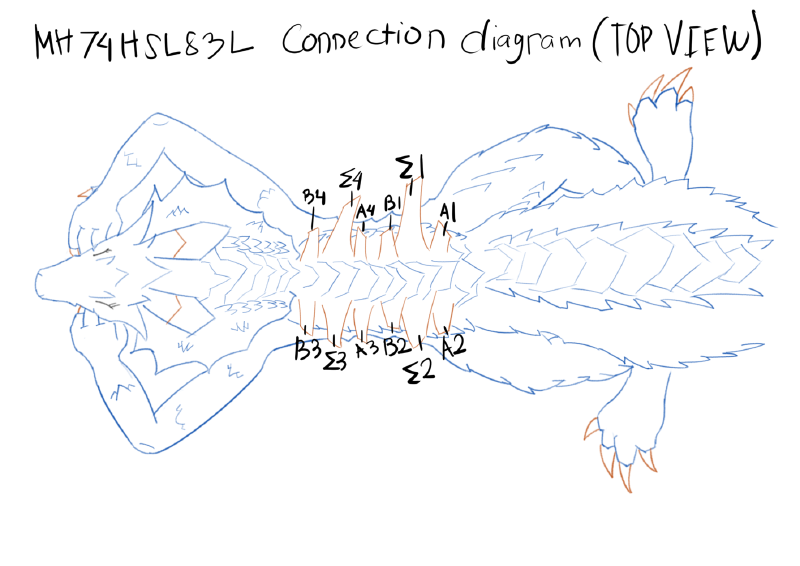 MH74HSL83L Connection diagram (TOP VIEW)
B4 Σ4 A4 B1 Σ1 A1
B3 Σ3 A3 B2 Σ2 A2